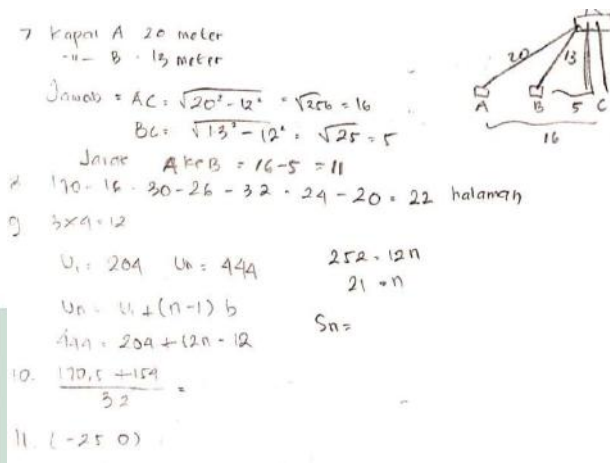 7 Kapal A 20 meter
-"- B 13 meter
Jawab = AC = √20² - 12² = √256 = 16
BC = √13² - 12² = √25 = 5
Jarak A ke B = 16 - 5 = 11
20
13
A B 5 C
16
170 - 16 - 30 - 26 - 32 - 24 - 20 = 22 halaman
9 3×4=12
U₁ = 204 Un = 444
Un = U₁ + (n-1) b
444 = 204 + 12n - 12
252 = 12n
21 = n
Sn=
10. 170,5 + 154
32 =
11. (-25 0)